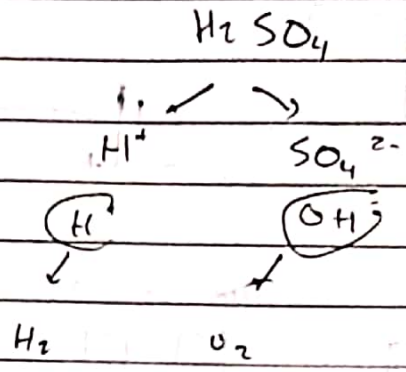 H2 SO4
H+ SO4 2-
H+ OH-
H2 O2